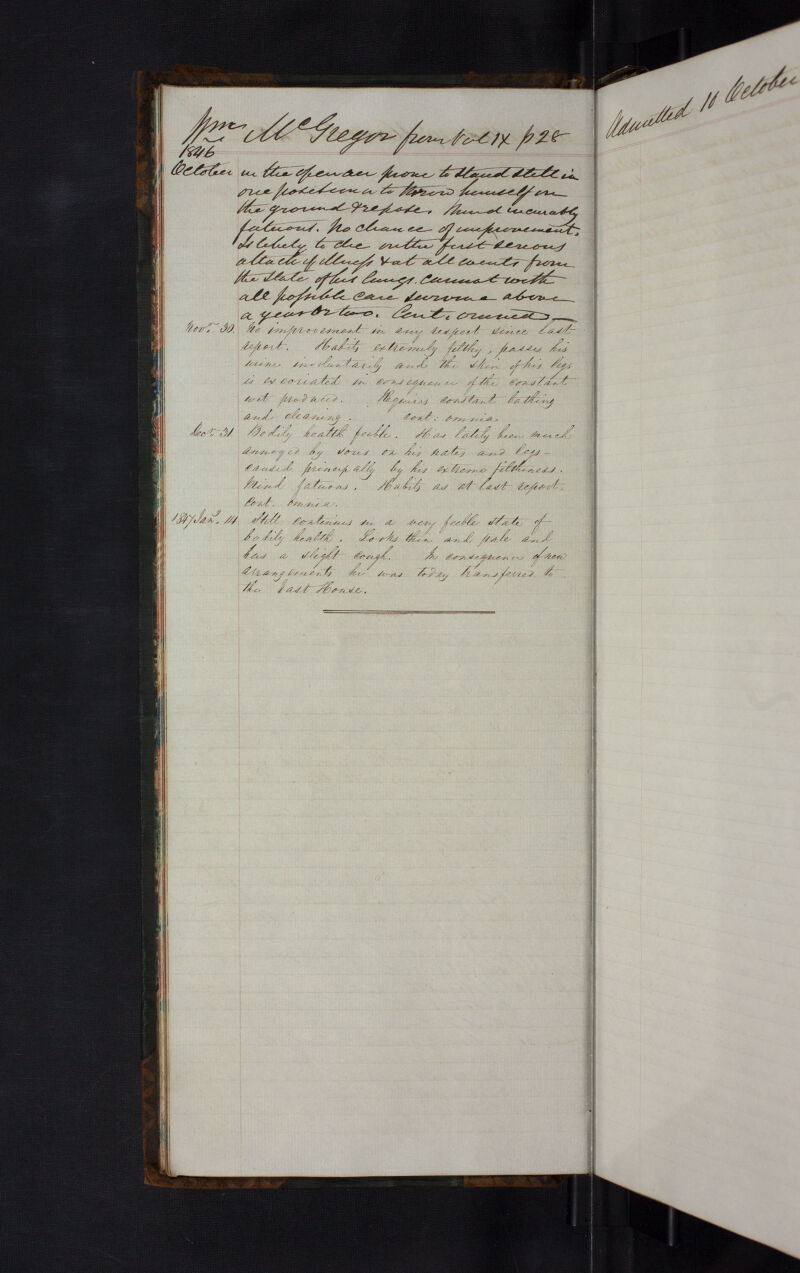 Wm McGregor from Vol IX p 28
1846
October in the open air prone to stand still in
one position or to throw himself on
the ground & repose. Mind incurably
fatuous. No chance of improvement.
Is likely to die on the first serious
attack of illness & at all events from
the state of his lungs cannot with
all possible care survive above
a year or two. Cont. omnia
Novr. 30. No improvement in any respect since last
report. Habits extremely filthy, passes his
urine involuntarily and the skin of his legs
is excoriated in consequence of the constant
wet produced. Requires constant bathing
and cleaning. Cont: omnia
Decr. 31 Bodily health feeble. Has lately been much
annoyed by sores on his nates and legs -
caused principally by his extreme filthiness.
Mind fatuous. Habits as at last report.
Cont. omnia.
1847 Jany. 14 Still continues in a very feeble state of
bodily health. Looks thin and pale and
has a slight cough. In consequence of new
arrangements he was today transferred to
the East House.
Admitted 10 October